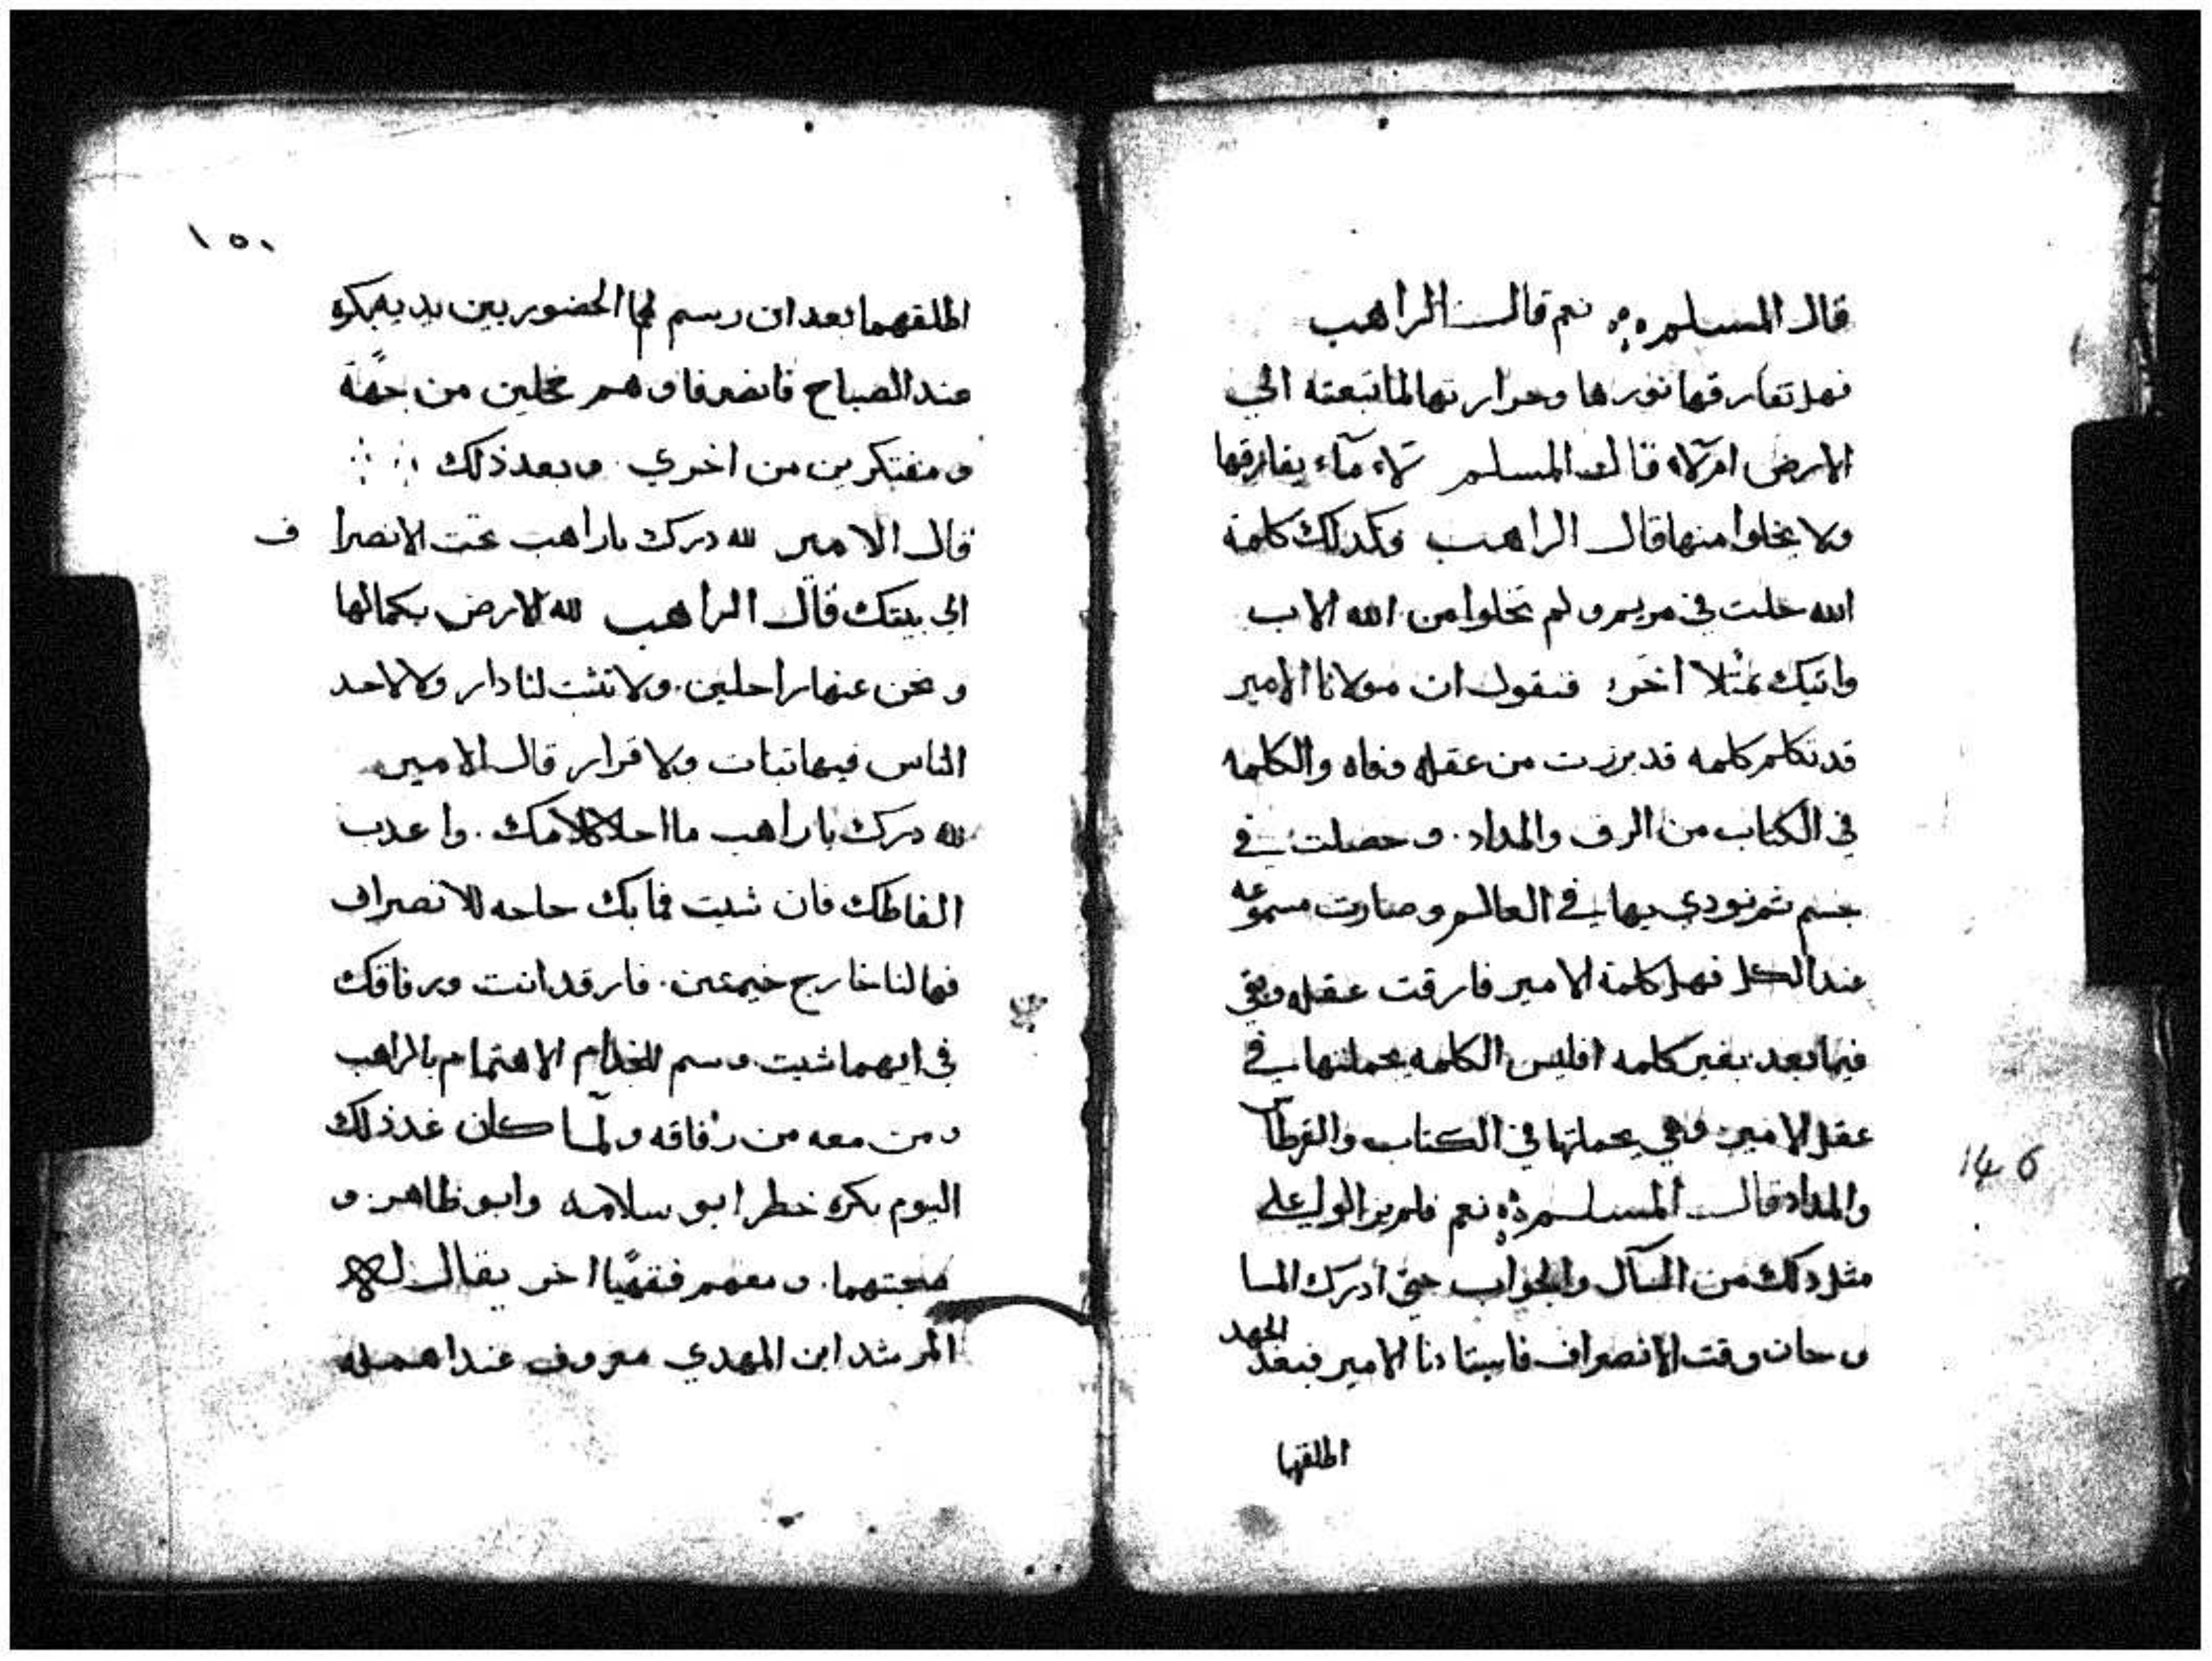 قال المسلم نعم قالت الراهب
فهل تفارقها نورها وحرارتها لما تبعته الي
الارض ام لا قالت المسلم لا ما يفارقها
ولا يخلوا منها قال الراهب وكدلك كلمة
الله حلت في مريم ولم تخلوا من الله الاب
واتيك بمثلا اخر فنقول ان مولانا الامير
قد تكلم كلمه قد برزت من عقله وفاه والكلمه
في الكتاب من الرق والمداد. وحصلت في
جسم ثم نودي بيها في العالم وصارت مسموعه
عند الكل فهل كلمة الامير فارقت عقله وبقي
فيما بعد بغير كلمه افليس الكلمه بجملتها في
عقل الامير وهي بجملتها في الكتاب والقرطاس
والمداد قالت المسلم نعم فلم يزالوا علي
مثل دلك من السآل والجواب حتي ادرك المسا
وحان وقت الانصراف فاستادنا الامير فبعد الجهد
اطلقهما
146
١٥٠
اطلقهما بعد ان رسم لهما الحضور بين يديه بكره
عند الصباح فانصرفا وهم مخلين من جهة
ومفتكرين من اخري. وبعد ذلك
قال الامير لله درك ياراهب تحت الانصراف
الي بيتك قال الراهب لله الارض بكمالها
ونحن عنها راحلين. ولا تثبت لنا دار ولا لاحد
الناس فيها تبات ولا قرار قال الامير
لله درك ياراهب ما احلا كلامك. واعدب
الفاظك فان شيت فما بك حاجه للانصراف
فها لنا خارج خيمتين. فارقد انت ورفاقك
في ايهما شيت. ورسم للخدام الاهتمام بالراهب
ومن معه من رفاقه ولما كان غد ذلك
اليوم بكره خطر ابو سلامه وابو ظاهر. و
صحبتهما. ومعهم فقهيًا اخر يقال له
المرشد ابن المهدي معروف عند اهل